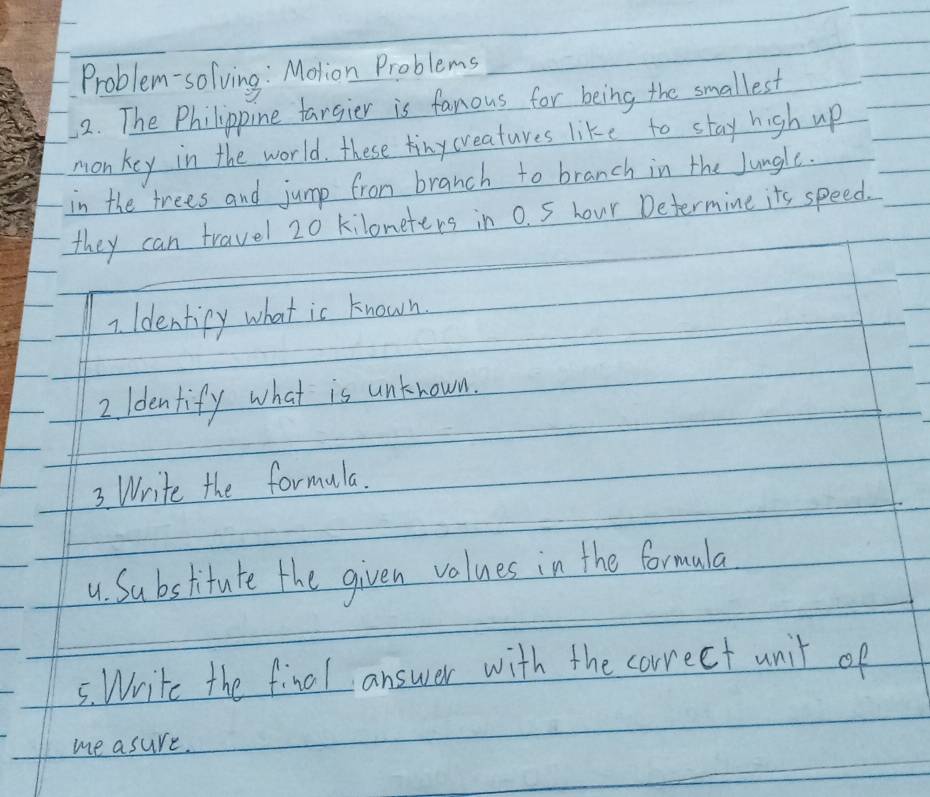 Problem-solving: Motion Problems
2. The Philippine targier is famous for being the smallest
monkey in the world. these tiny creatures like to stay high up
in the trees and jump from branch to branch in the Jungle.
they can travel 20 kilometers in 0.5 hour Determine its speed.
1. Identify what is known.
2. Identify what is unknown.
3. Write the formula.
4. Substitute the given values in the formula
5. Write the final answer with the correct unit of
measure.